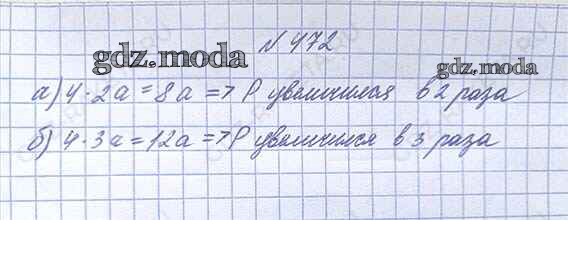 N 472
gdz.moda
gdz.moda
а) 4·2а = 8а => P увеличился в 2 раза
б) 4·3а = 12а => P увеличился в 3 раза